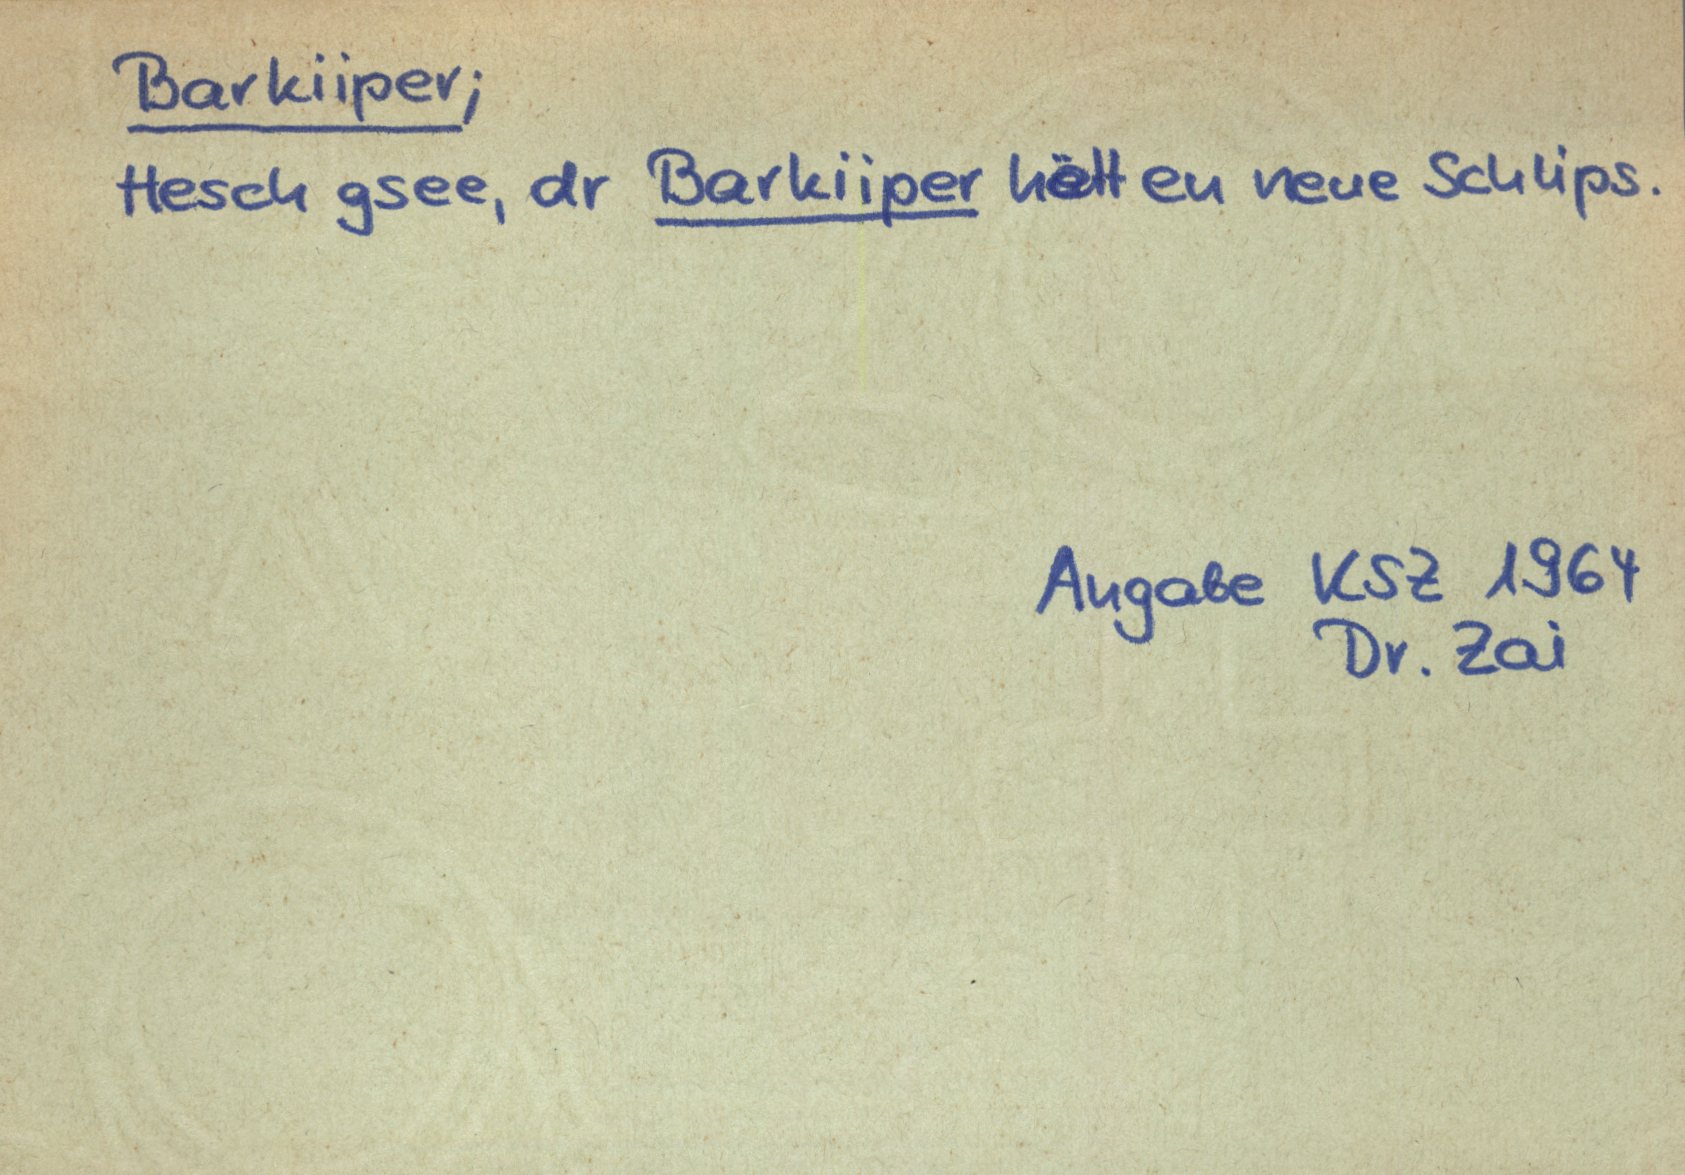 Barkiiper;
Hesch gsee, dr Barkiiper hätt en neue Schlips.
Angabe KSZ 1964
Dr. Zai